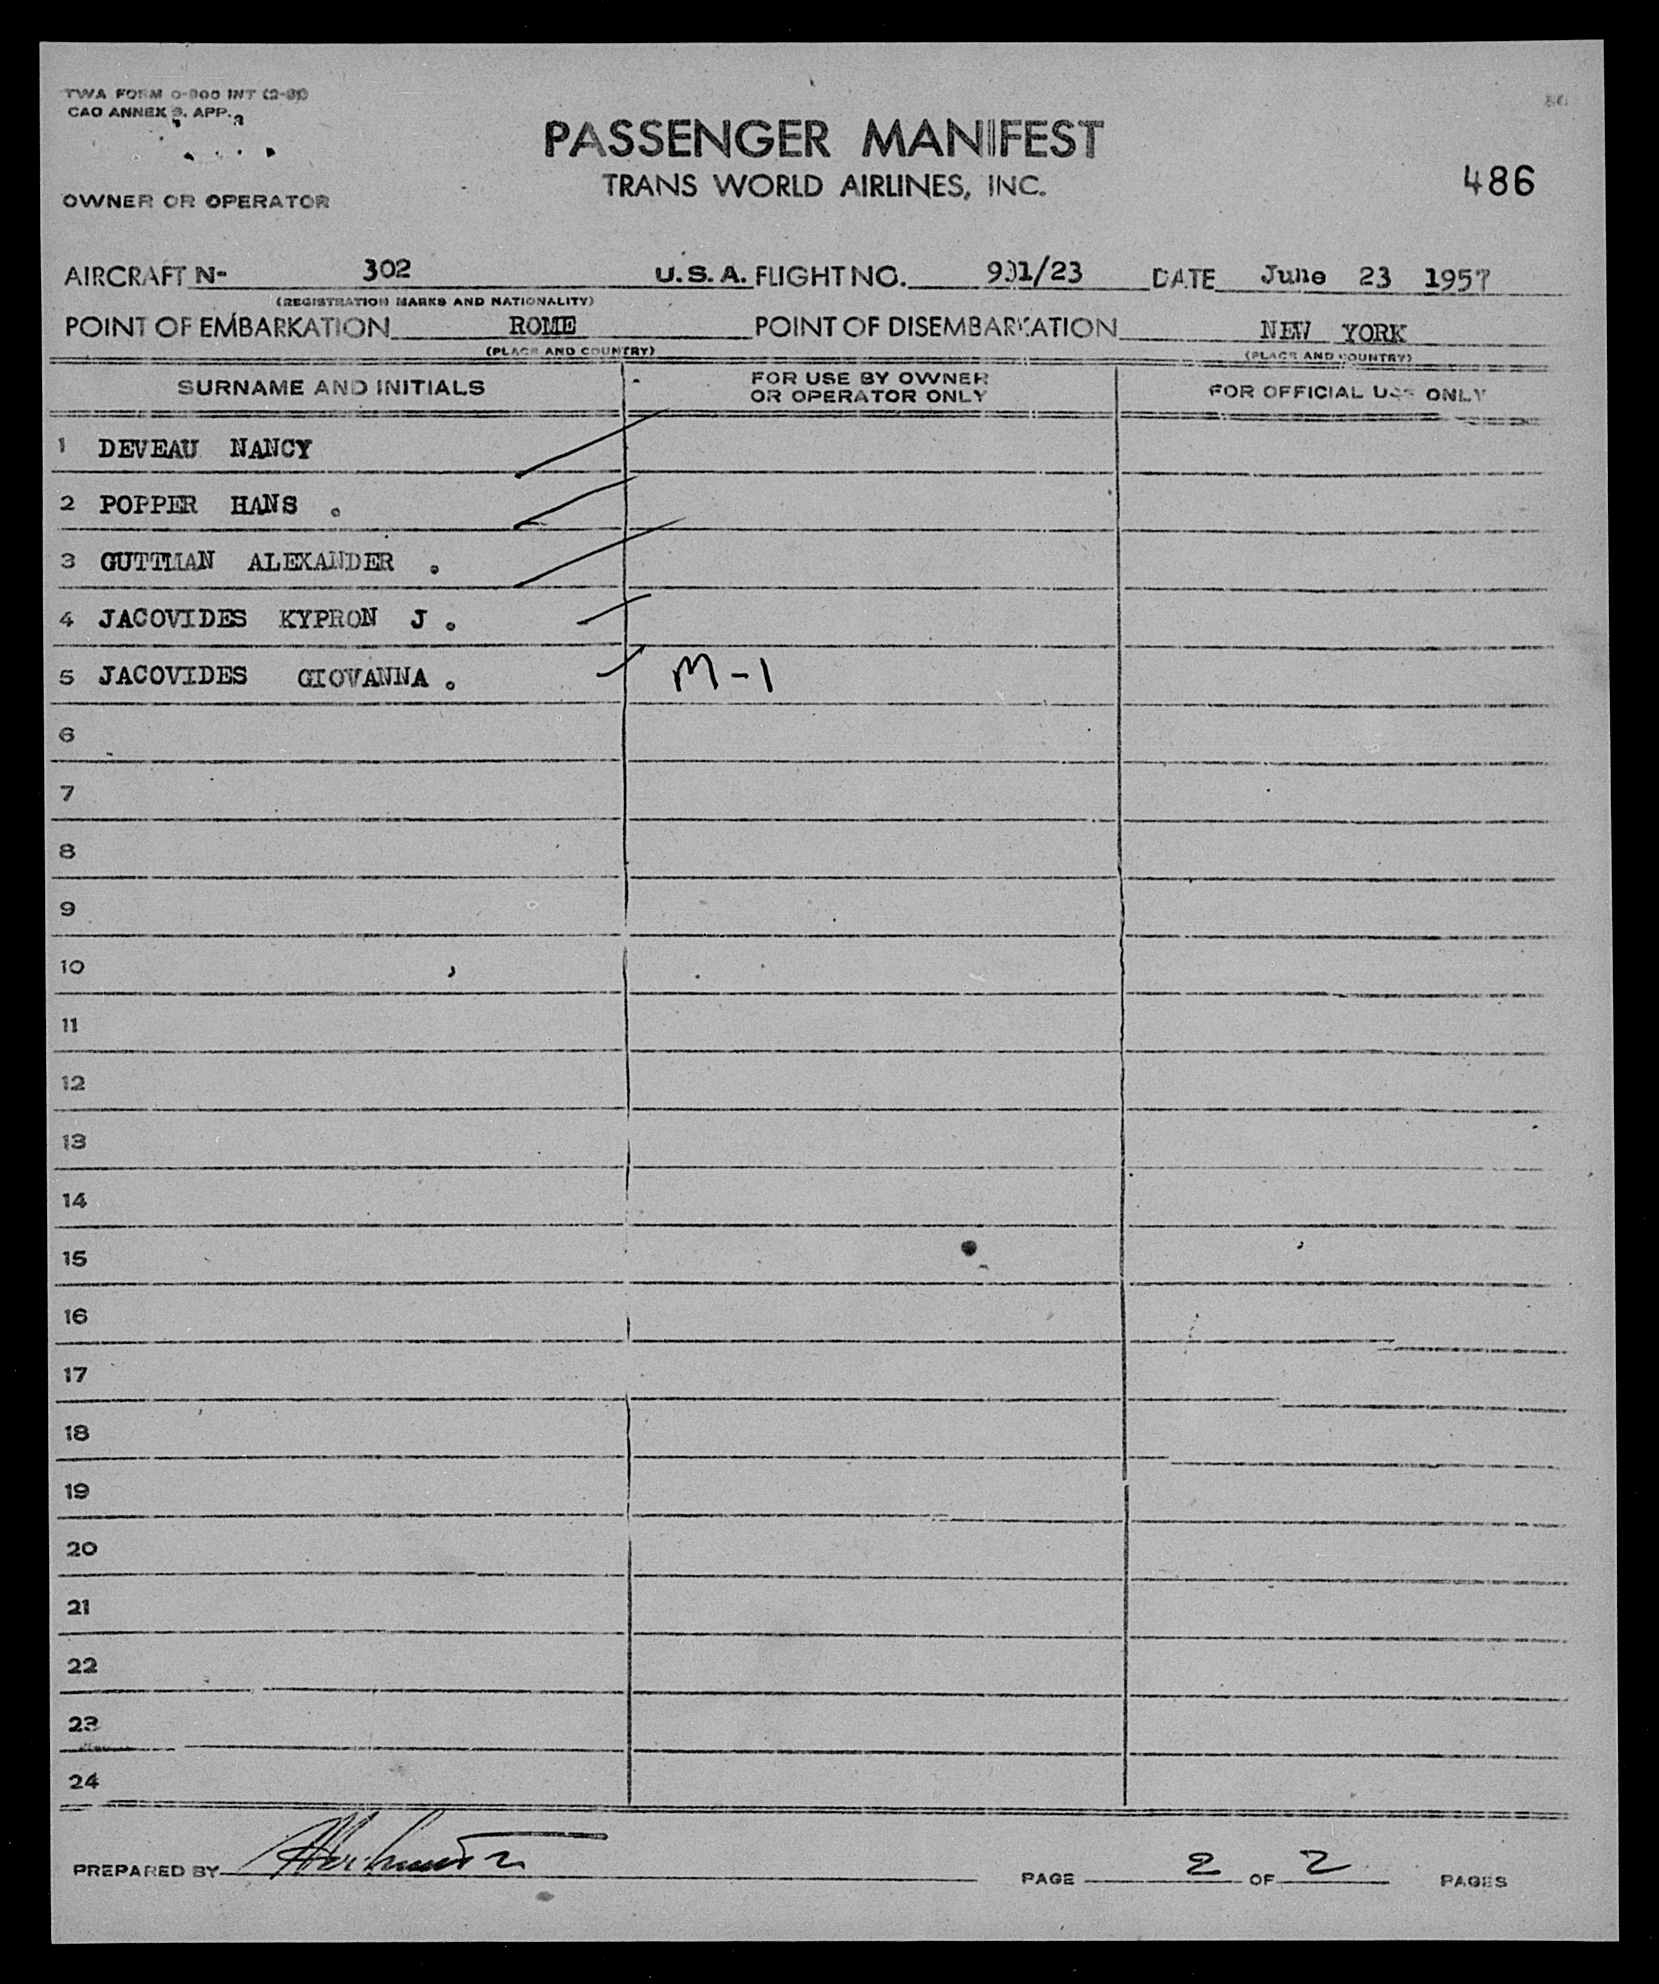 TWA FORM 0-800 INT (2-51)
CAO ANNEX 9. APP. 3
PASSENGER MANIFEST
TRANS WORLD AIRLINES, INC.
486
OWNER OR OPERATOR
AIRCRAFT N- 302 U.S.A. FLIGHT NO. 901/23 DATE June 23 1957
(REGISTRATION MARKS AND NATIONALITY)
POINT OF EMBARKATION ROME POINT OF DISEMBARKATION NEW YORK
(PLACE AND COUNTRY) (PLACE AND COUNTRY)
SURNAME AND INITIALS FOR USE BY OWNER OR OPERATOR ONLY FOR OFFICIAL USE ONLY
1 DEVEAU NANCY
2 POPPER HANS .
3 GUTTMAN ALEXANDER .
4 JACOVIDES KYPRON J .
5 JACOVIDES GIOVANNA . M-1
6
7
8
9
10
11
12
13
14
15
16
17
18
19
20
21
22
23
24
PREPARED BY PAGE 2 OF 2 PAGES